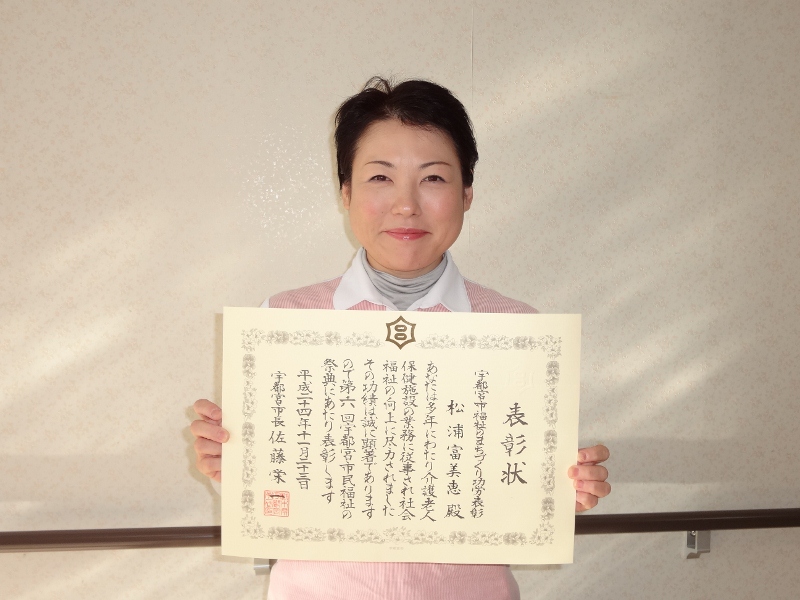 表彰状
宇都宮市福祉のまちづくり功労表彰
松浦富美恵 殿
あなたは多年にわたり介護老人
保健施設の業務に従事され社会
福祉の向上に尽力されました
その功績は誠に顕著であります
ので第六回宇都宮市民福祉の
祭典にあたり表彰します
平成二十四年十一月二十三日
宇都宮市長 佐藤栄一